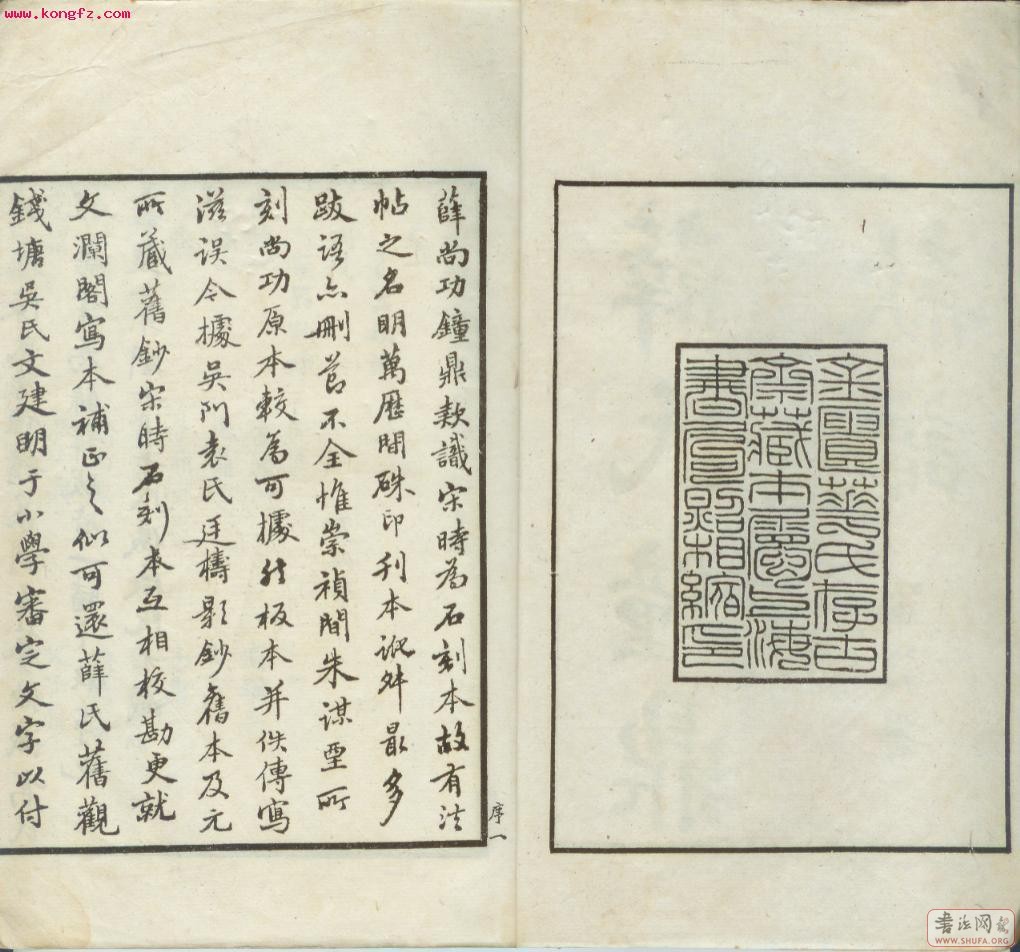 www.kongfz.com
金匱華氏存古
齋藏本鑒上海
書局影相縮印
薛尚功鐘鼎款識宋時為石刻本故有法
帖之名明萬歷間硃印刊本訛舛最多
跋語亦刪節不全惟崇禎間朱謀垔所
刻尚功原本較為可據然板本并佚傳寫
滋误今據吳門袁氏廷檮影鈔舊本及元
所藏舊鈔宋時石刻本互相校勘更就
文瀾閣寫本補正之似可還薛氏舊觀
錢塘吳氏文建明于小學審定文字以付
序一
書法网
WWW.SHUFA.ORG